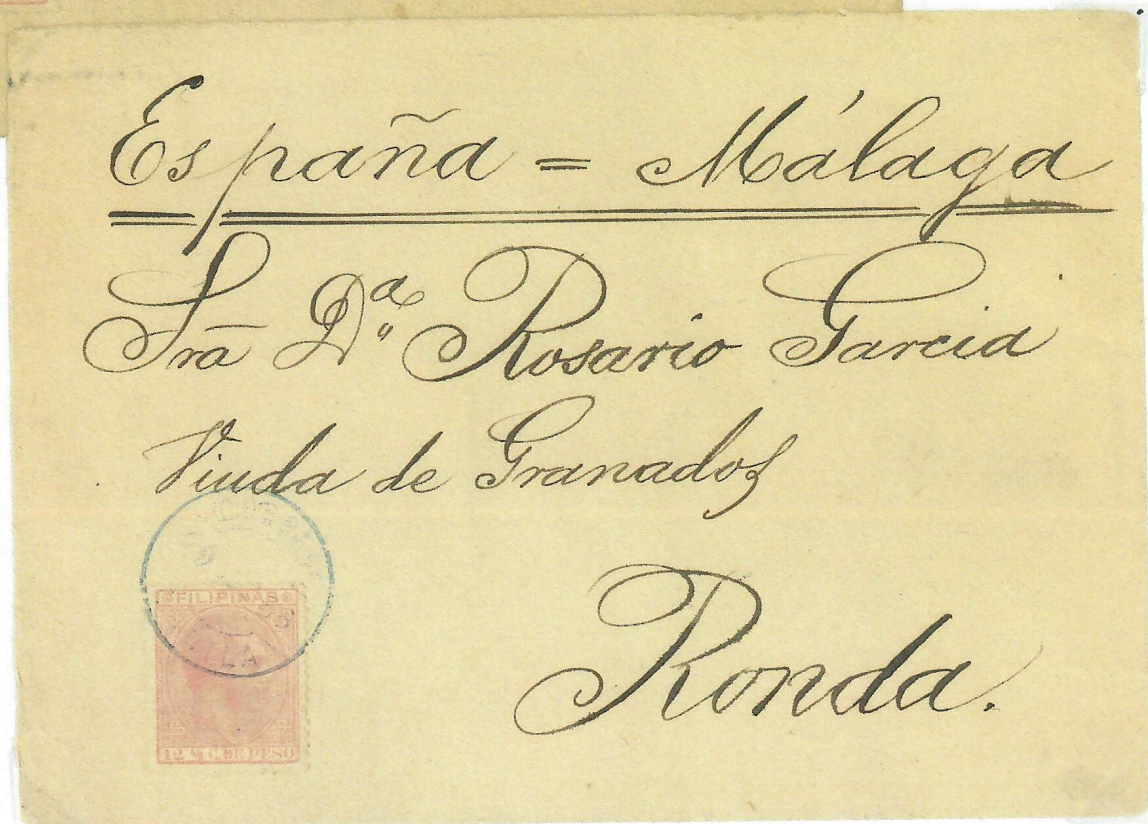 España = Málaga
Sra Dª Rosario Garcia
Viuda de Granados
Ronda.
FILIPINAS
12 4/8 C. DE PESO